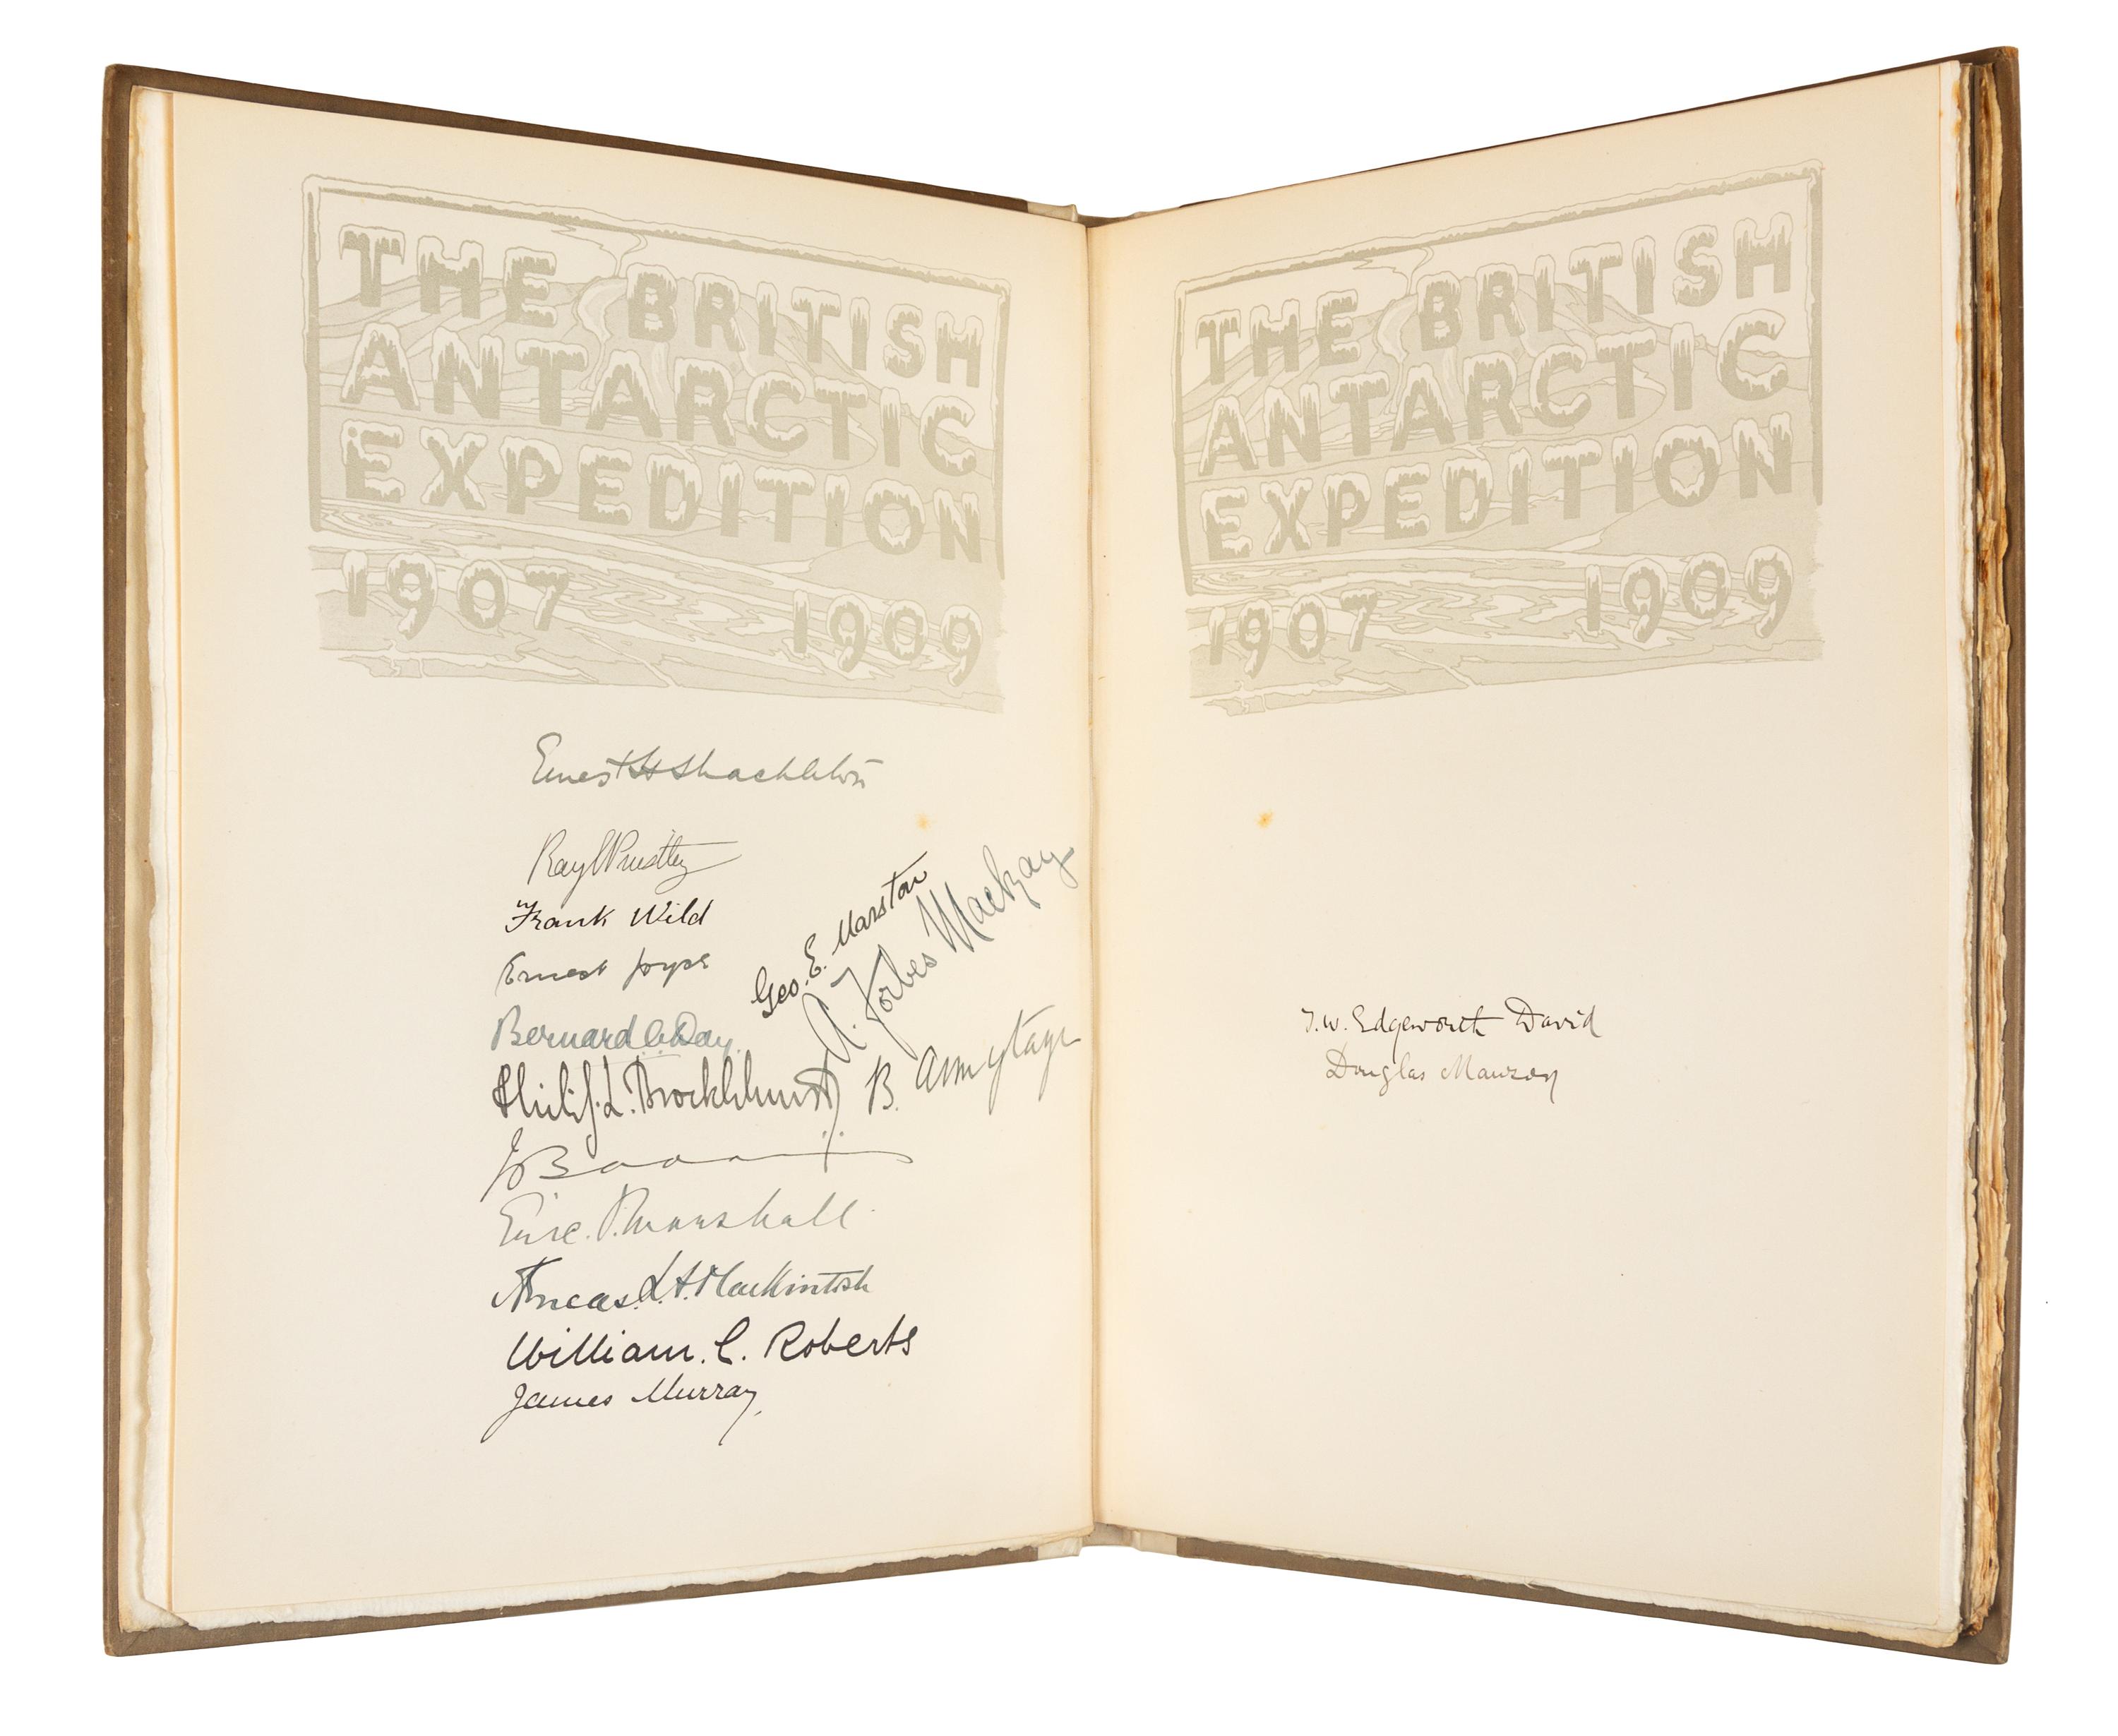 THE BRITISH
ANTARCTIC
EXPEDITION
1907 1909
Ernest H Shackleton
Raymond Priestley
Frank Wild
Ernest Joyce
Bernard C. Day.
Geo. E. Marston
A. Forbes Mackay
Philip. L. Brocklehurst
B. Armytage
Eric. S. Marshall.
Aeneas. L. A. Mackintosh
William. C. Roberts
James Murray,
THE BRITISH
ANTARCTIC
EXPEDITION
1907 1909
T. W. Edgeworth David
Douglas Mawson